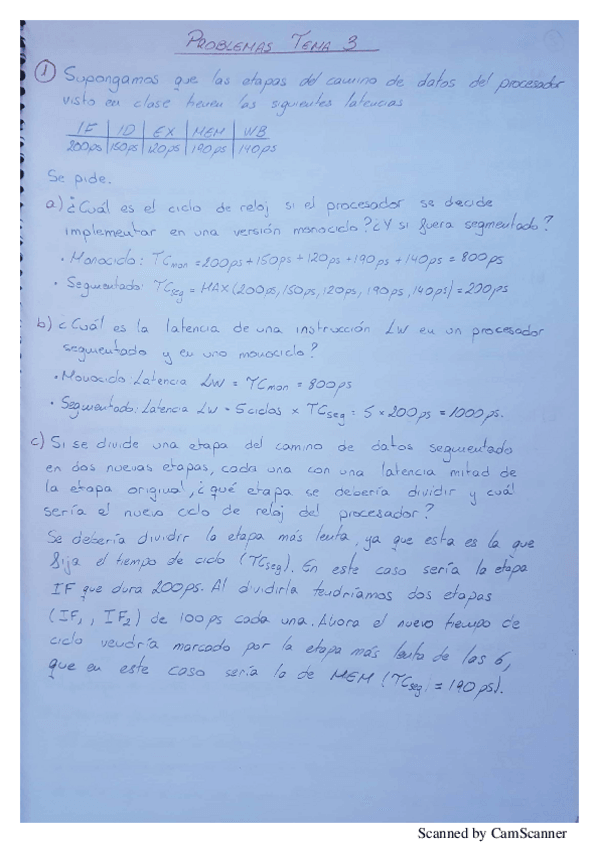 PROBLEMAS TEMA 3
1 Supongamos que las etapas del camino de datos del procesador
visto en clase tienen las siguientes latencias
IF | ID | EX | MEM | WB
200ps | 150ps | 120ps | 190ps | 140ps
Se pide.
a) ¿Cuál es el ciclo de reloj si el procesador se decide
implementar en una versión monociclo? ¿Y si fuera segmentado?
• Monociclo: TCmon = 200ps + 150ps + 120ps + 190ps + 140ps = 800ps
• Segmentado: TCseg = MAX(200ps, 150ps, 120ps, 190ps, 140ps) = 200ps
b) ¿Cuál es la latencia de una instrucción LW en un procesador
segmentado y en uno monociclo?
• Monociclo: Latencia LW = TCmon = 800ps
• Segmentado: Latencia LW = 5 ciclos x TCseg = 5 x 200ps = 1000ps.
c) Si se divide una etapa del camino de datos segmentado
en dos nuevas etapas, cada una con una latencia mitad de
la etapa original, ¿qué etapa se debería dividir y cuál
sería el nuevo ciclo de reloj del procesador?
Se debería dividir la etapa más lenta, ya que esta es la que
fija el tiempo de ciclo (TCseg). En este caso sería la etapa
IF que dura 200ps. Al dividirla tendríamos dos etapas
(IF1, IF2) de 100ps cada una. Ahora el nuevo tiempo de
ciclo vendría marcado por la etapa más lenta de las 6,
que en este caso sería la de MEM (TCseg = 190ps).
Scanned by CamScanner